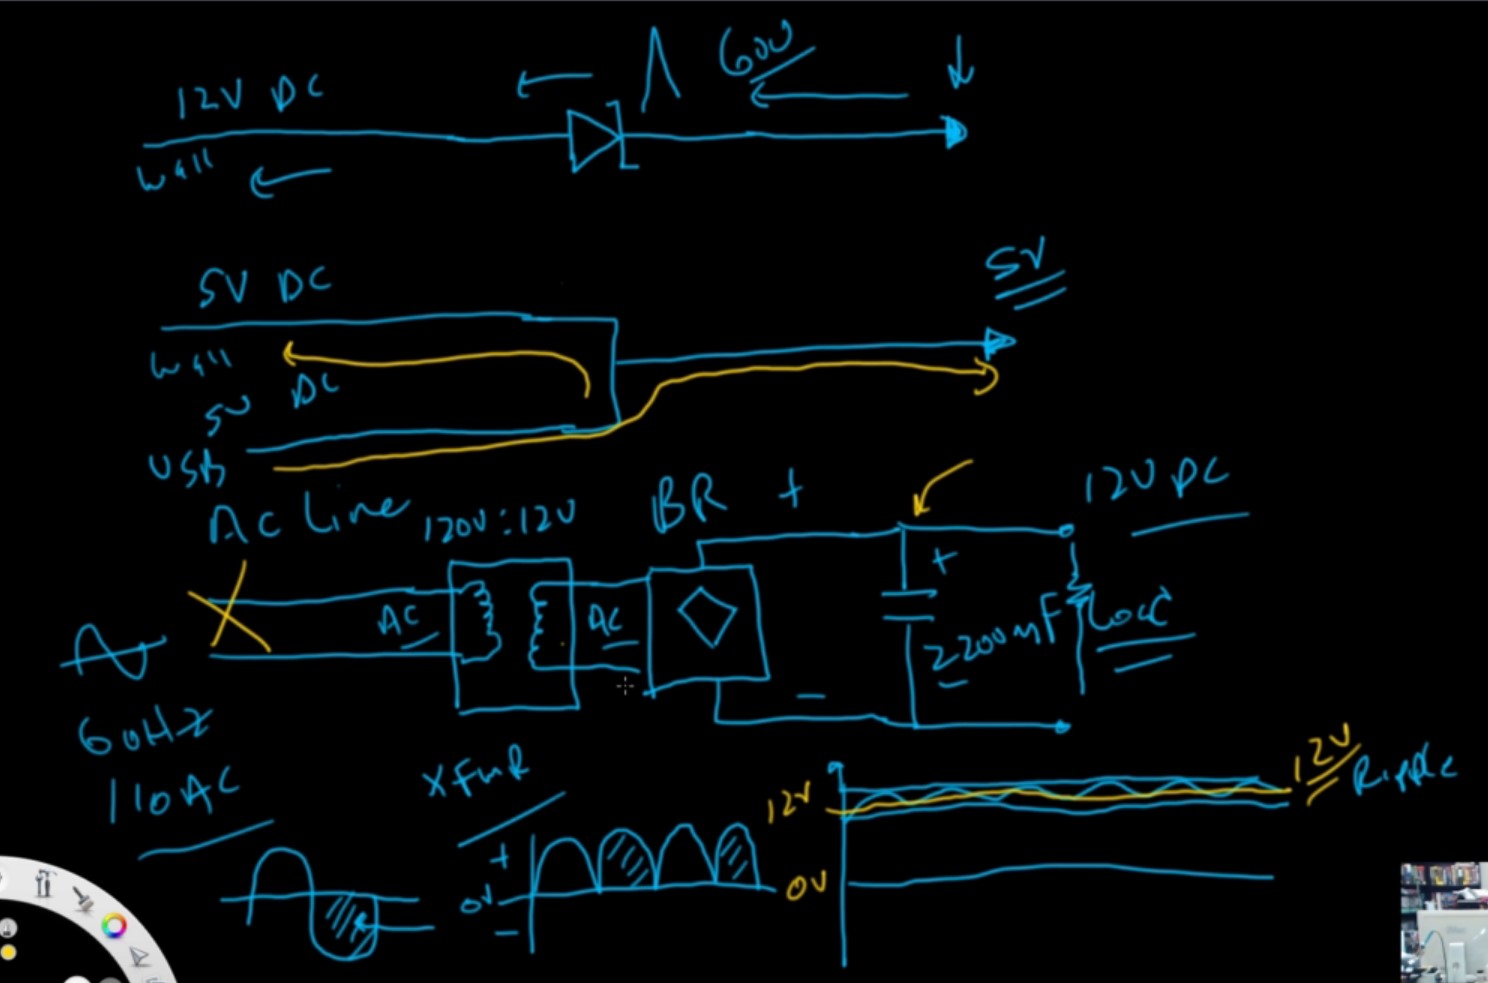 12V DC
60V
Wall
5V DC
5V
Wall
5V DC
USB
AC Line
120V:12V
BR +
12V DC
+
AC
AC
2200mF
Load
-
60Hz
110AC
XFMR
12V
12V
Ripple
+
0V
-
0V